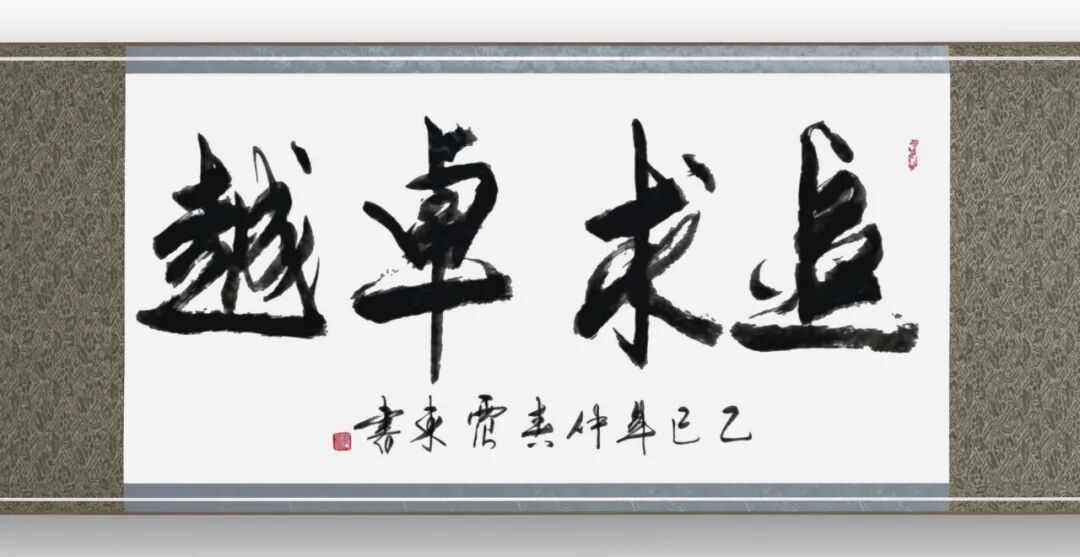 追求卓越
乙巳年仲春東書